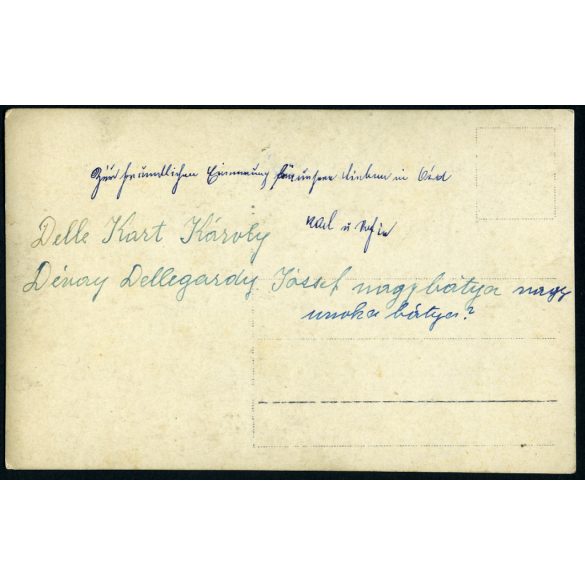 Zur freundlichen Erinnerung für unsere Lieben in
Karl u
Delle Kart Károly
Dévay Dellegardy József nagybátya nagy
unoka bátya?